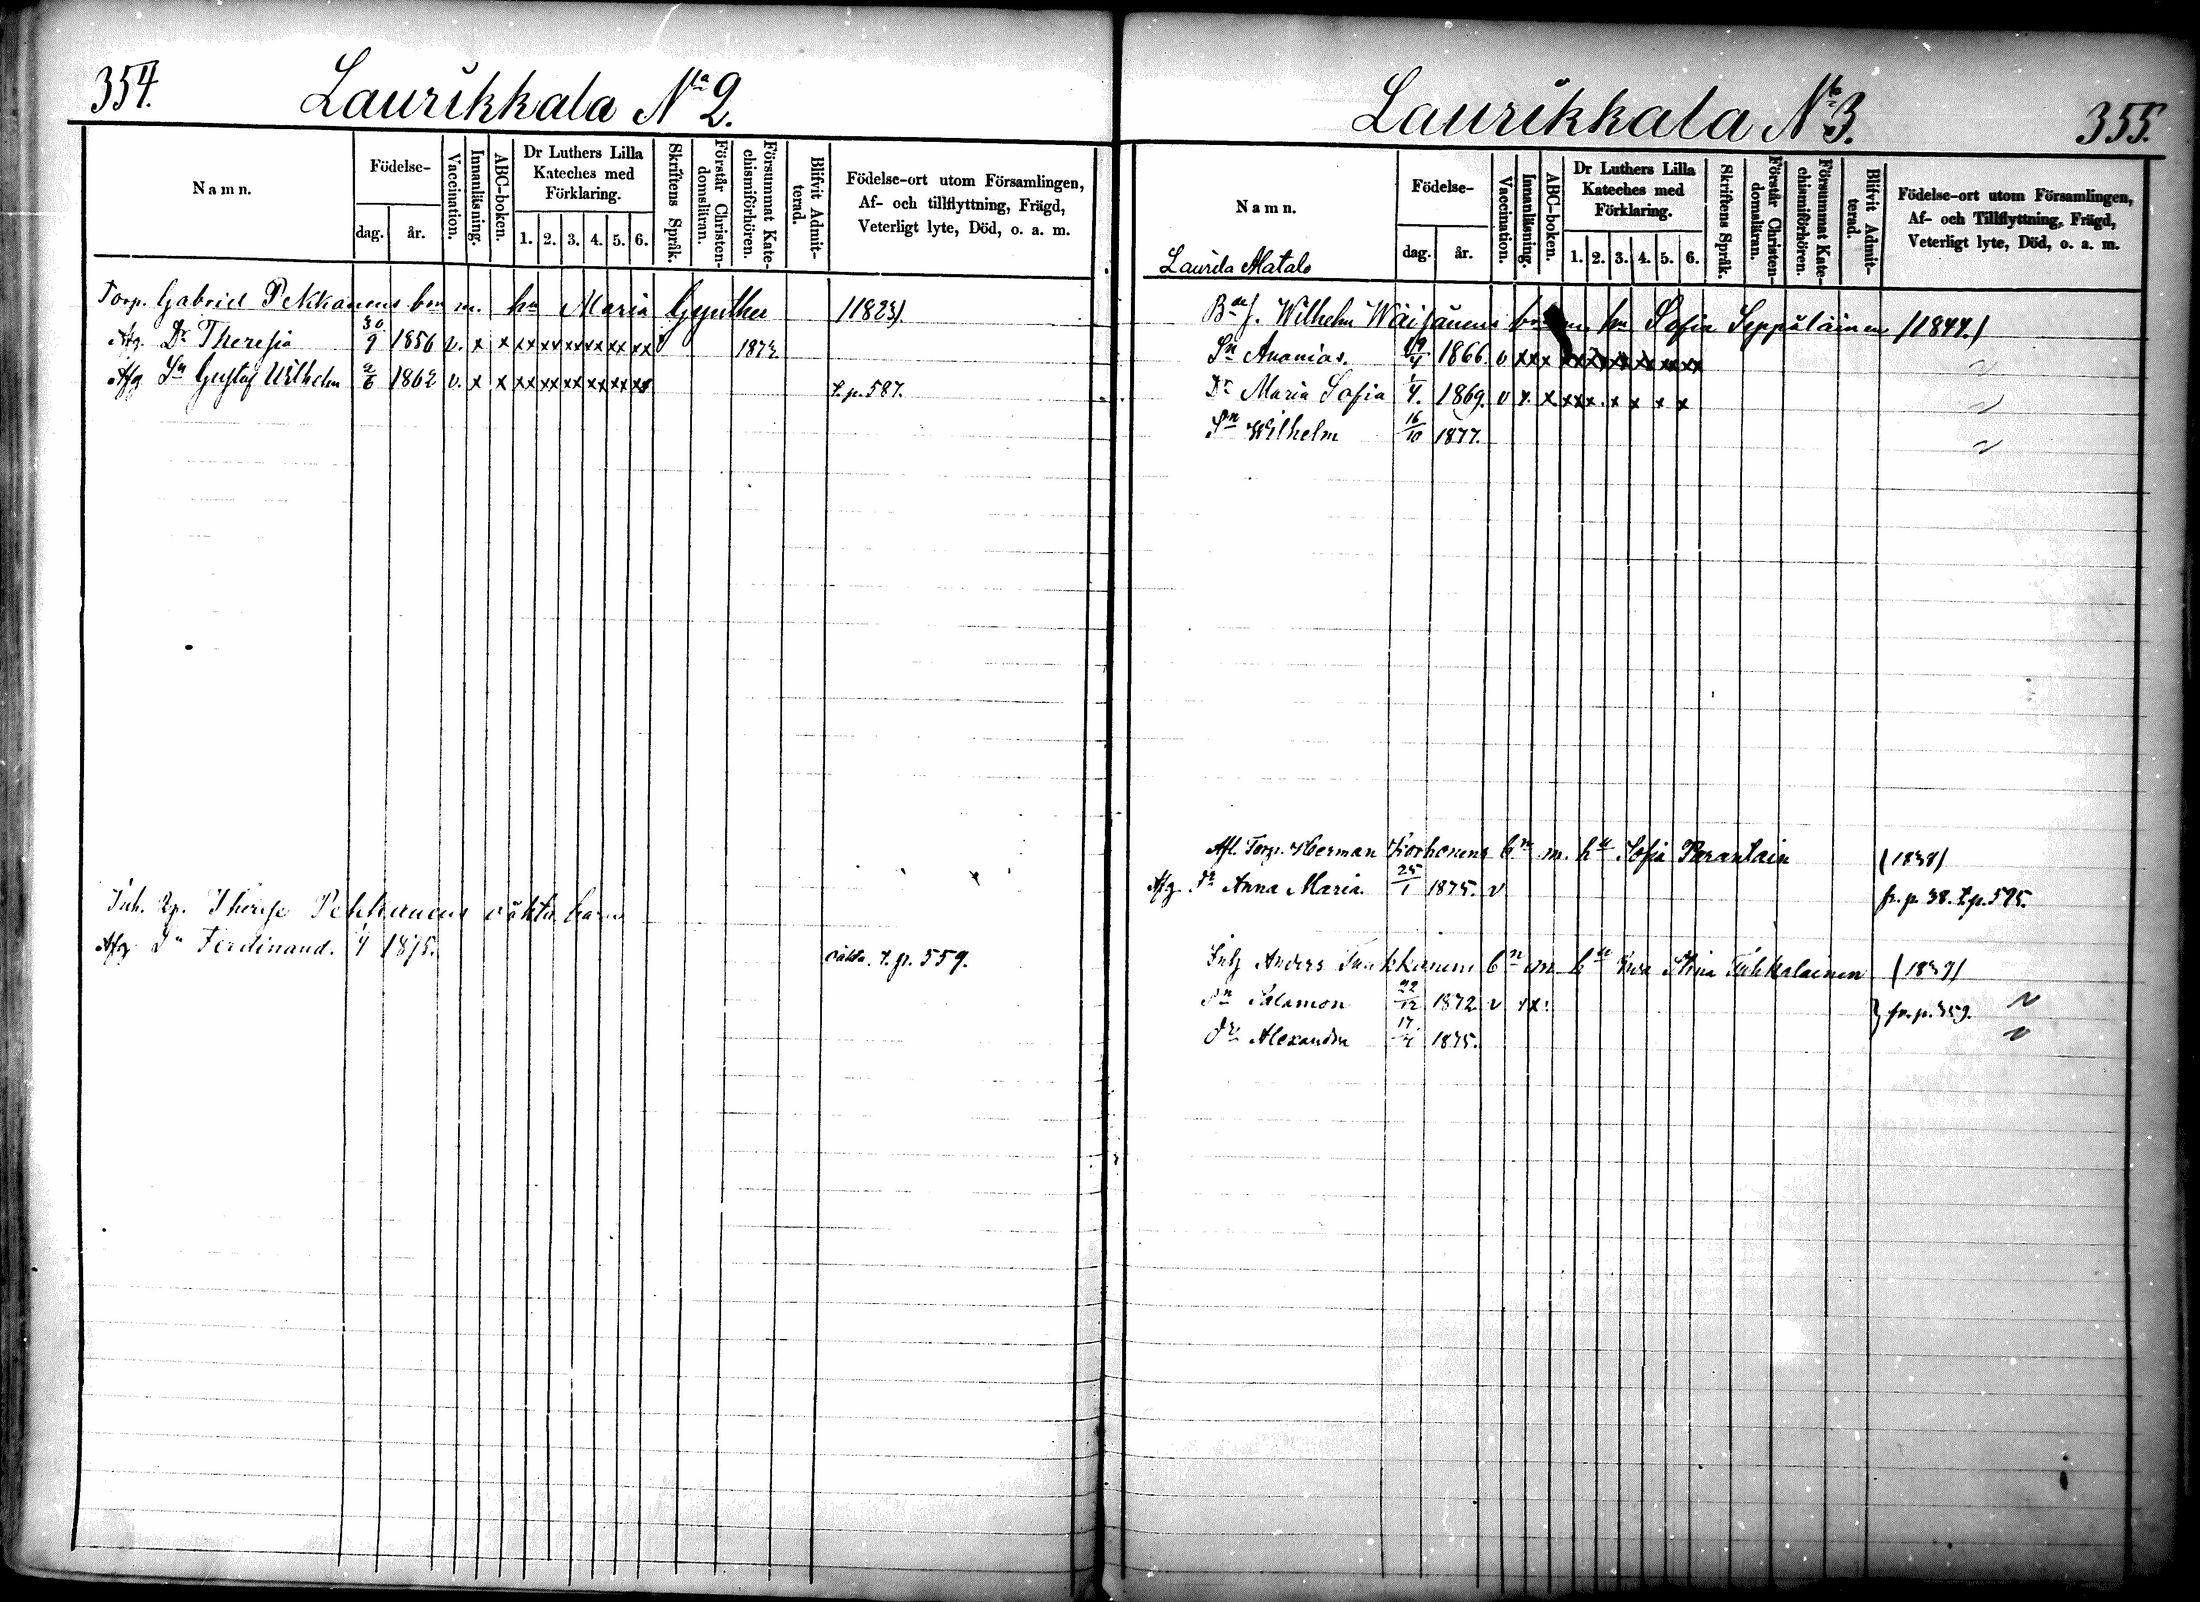 354.
Laurikkala No 2.
Namn.
Födelse-
dag.
år.
Vaccination.
Innanläsning.
ABC-boken.
Dr Luthers Lilla
Kateches med
Förklaring.
1. 2. 3. 4. 5. 6.
Skriftens Språk.
Förstår Christen-
domsläran.
Försummat Kate-
chismiförhören.
Blifvit Admit-
terad.
Födelse-ort utom Församlingen,
Af- och tillflyttning, Frägd,
Veterligt lyte, Död, o. a. m.
Torp. Gabriel Pekkanens barn m. hu Maria Gynther /1823/.
Afg. Dr Theresia 30/9 1856 v. x x xx xx xx xx xx xx 1873
Afg Sn Gustaf Wilhelm 2/6 1862 v. x x xx xx xx xx xx xx t.p. 587.
Inh. Therese Pekkanens oäkta barn
Afg Sn Ferdinand. 1/4 1875. oäkta. t. p. 559.
Laurikkala No 3.
355.
Namn.
Laurila Matala
Födelse-
dag.
år.
Vaccination.
Innanläsning.
ABC-boken.
Dr Luthers Lilla
Kateches med
Förklaring.
1. 2. 3. 4. 5. 6.
Skriftens Språk.
Förstår Christen-
domsläran.
Försummat Kate-
chismiförhören.
Blifvit Admit-
terad.
Födelse-ort utom Församlingen,
Af- och Tillflyttning, Frägd,
Veterligt lyte, Död, o. a. m.
Wilhelm Wäisänens hu Sofia Seppäläinen /1844./
Sn Ananias. 1866. v xx x
Dr Maria Sofia 1/4. 1869. v x. x xx x. x x x x
Sn Wilhelm 16/10 1877.
Afl. Torp. Herman Korhonens bn m. hu Sofia Parantain (1838)
Afg. Dr Anna Maria. 25/1 1875. v fr. p. 38. t.p. 595.
Inh Anders bn m hu Eva Stina Tuhkalainen (1839)
Sn Salamon 22/12 1872 v xx. } fr. p. 359.
Dr Alexandra 17/4 1875.